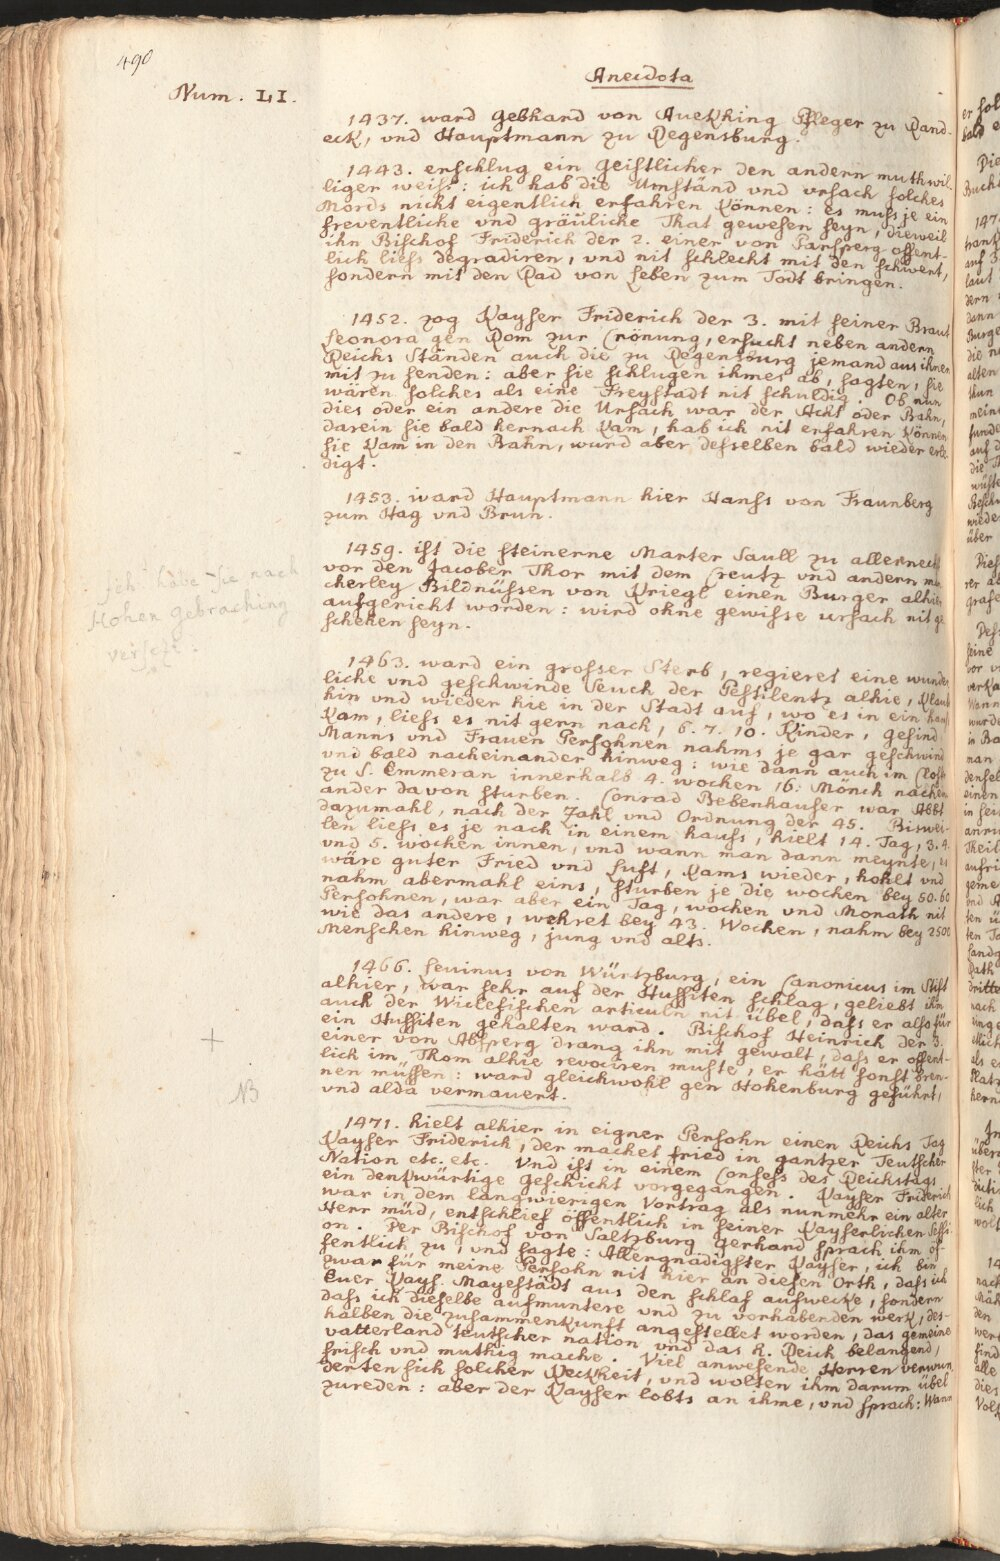 490
Num. LI.
Anecdota
1437. ward Gebhard von Auekhing Pfleger zu Rand-
eck, vnd Hauptmann zu Regensburg.
1443. erschlug ein Geistlicher den andern muthwil-
liger weiss: ich hab die Umständ vnd ursach solches
Mords nicht eigentlich erfahren können: es muss je ein
freventliche vnd gräuliche That gewesen seyn, dieweil
ihn Bischof Friderich der 2. einer von Parsperg offent-
lich liess degradiren, vnd nit schlecht mit den schwert,
sondern mit den Rad von Leben zum Todt bringen.
1452. zog Kayser Friderich der 3. mit seiner Braut
Leonora gen Rom zur Crönung, ersucht neben andern
Reichs Ständen auch die zu Regensburg jemand aus ihnen
mit zu senden: aber sie schlugen ihmes ab, sagten, sie
wären solches als eine Freystadt nit schuldig. Ob nun
dies oder ein andere die Ursach war der Acht oder Bahn,
darein sie bald hernach kam, hab ich nit erfahren können
sie kam in den Bahn, wurd aber desselben bald wieder erle-
digt.
1453. ward Hauptmann hier Hanss von Fraunberg
zum Hag vnd Brun.
1459. ist die steinerne Marter Saull zu allernechst
vor den Jacober Thor mit dem Creutz vnd andern man
cherley Bildnüssen von Kriegl einen Burger alhier
aufgericht worden: wird ohne gewisse ursach nit ge
schehen seyn.
Ich habe sie nach
Hohen Gebraching
versezt:
1463. ward ein grosser Sterb, regieret eine wunder
liche vnd geschwinde Seuch der Pestilentz alhie, klaubt
hin vnd wieder hie in der Stadt auf, wo es in ein hauss
kam, liess es nit gern nach, 6. 7. 10. Kinder, gesind
Manns vnd Frauen Persohnen nahms je gar geschwind
vnd bald nacheinander hinweg: wie dann auch im Closter
zu S. Emmeran innerhalb 4. wochen 16: Mönch nachein
ander davon sturben. Conrad Bebenhauser war Abbt
dazumahl, nach der Zahl vnd Ordnung der 45. Biswei-
len liess es je nach in einem hauss, hielt 14. Tag, 3. 4.
vnd 5. wochen innen, vnd wann man dann meynte, es
wäre guter Fried vnd Lust, kams wieder, hohlt vnd
nahm abermahl eins, sturben je die wochen bey 50. 60
Persohnen, war aber ein Tag, wochen vnd Monath nit
wie das andere, wehret bey 43. Wochen, nahm bey 2500
Menschen hinweg, jung vnd alts.
1466. Levinus von Würtzburg, ein Canonicus im Stift
alhier, war sehr auf der Hussiten schlag, geliebt ihm
auch der Wiclefischen articuln nit übel, dass er also für
ein Hussiten gehalten ward. Bischof Heinrich der 3.
einer von Absperg drang ihn mit gewalt, dass er offent-
lich im Thom alhie revociren muste, er hätt sonst bren-
nen müssen: ward gleichwohl gen Hohenburg geführt,
vnd alda vermauert.
+
NB
1471. hielt alhier in eigner Persohn einen Reichs Tag
Kayser Friderich, der machet fried in gantzer Teutscher
Nation etc. etc. Vnd ist in einem Consess des Reichstags
ein denkwürtige Geschicht vorgegangen. Kayser Friderich
war in dem langwierigen Vortrag als nunmehr ein alter
Herr müd, entschlief öffentlich in seiner Kayserlichen Sessi-
on. Der Bischof von Saltzburg Gerhard sprach ihm of-
fentlich zu, vnd sagte: Allergnädigster Kayser, ich bin
zwar für meine Persohn nit hier an diesen Orth, dass ich
Euer Kays. Mayestädt aus den schlaf aufwecke, sondern
dass ich dieselbe aufmuntere vnd zu vorhabenden werk, des-
halben die zusammenkunft angestellet worden, das gemeine
vatterland teutscher nation vnd das H. Reich belangend,
frisch vnd muthig mache. Viel anwesende Herren verwun
derten sich solcher Keckheit, vnd wolten ihm darum übel
zureden: aber der Kayser lobts an ihme, vnd sprach: Wann